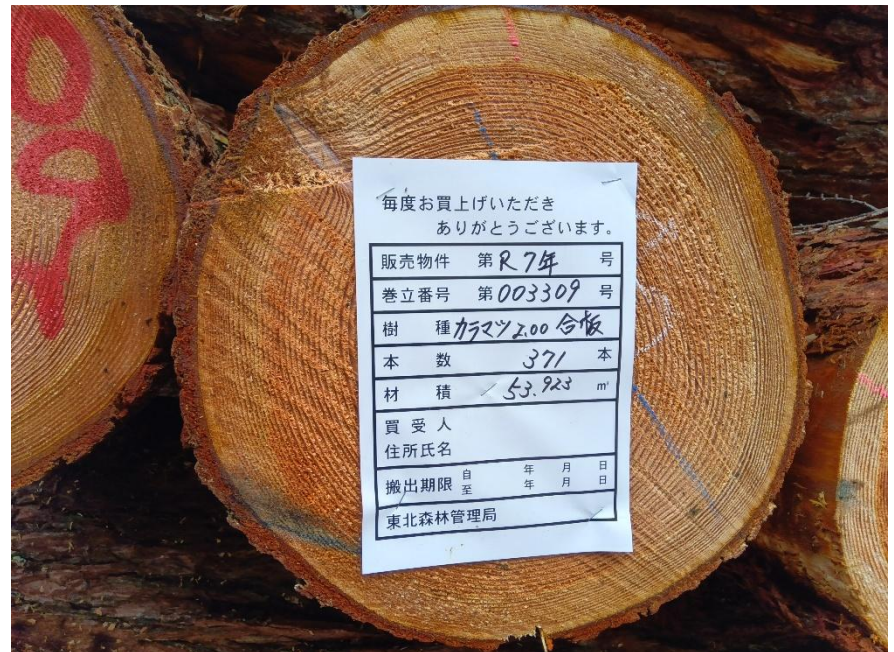 毎度お買上げいただき
ありがとうございます。
販売物件 第R7年 号
巻立番号 第003309 号
樹 種 カラマツ2.00 合板
本 数 371 本
材 積 53.923 m³
買 受 人
住所氏名
搬出期限 自 年 月 日
至 年 月 日
東北森林管理局